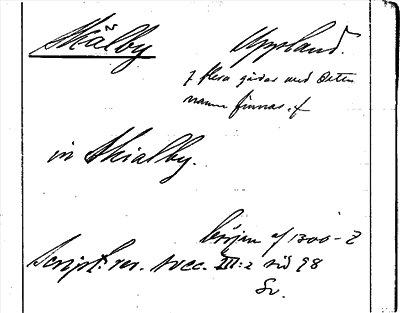 Skälby Uppland.
flera gårdar med detta
namn finnas.
in Skialby.
början af 1300-
Script. rer. svec. III:2 sid 98
Sv.